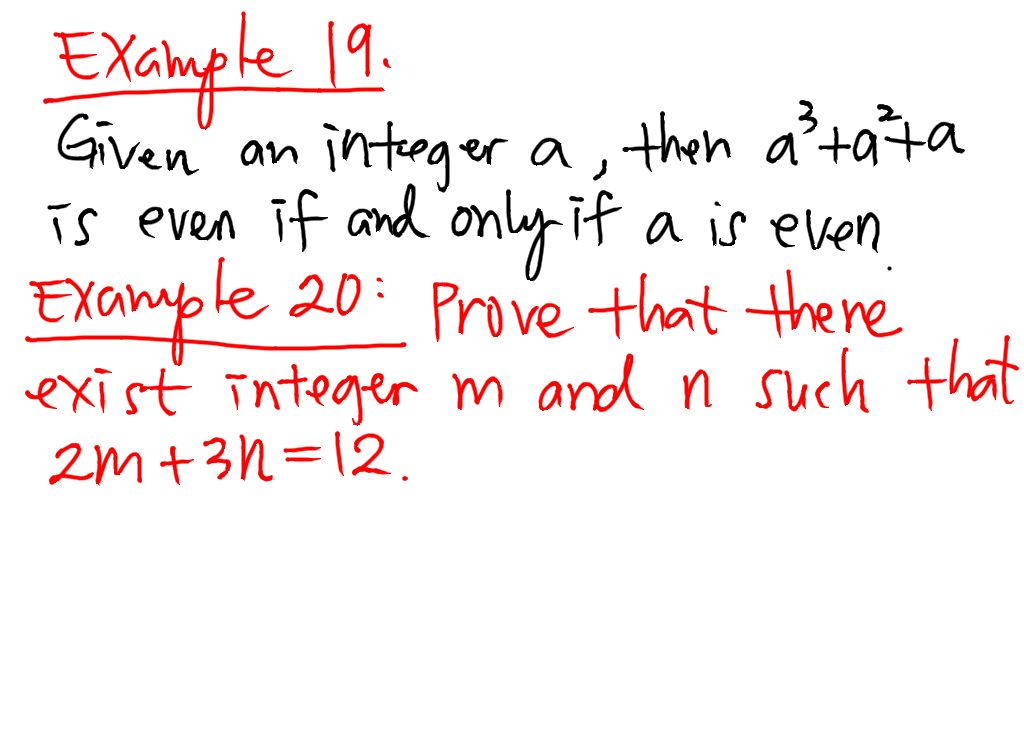 Example 19.
Given an integer a, then a³+a²+a
is even if and only if a is even.
Example 20: Prove that there
exist integer m and n such that
2m+3n=12.